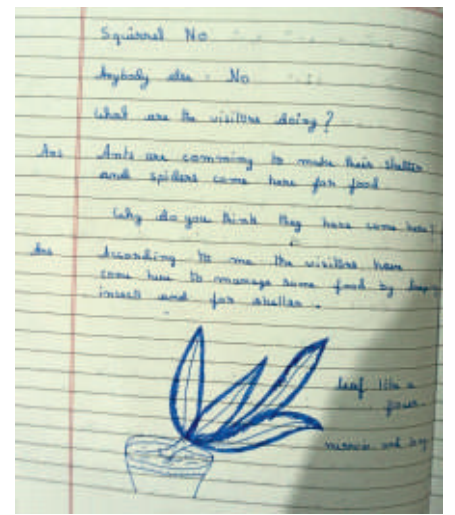 Squirrel No
Anybody else No
What are the visitors doing?
Ans Ants are comming to make their shelter
and spiders come here for food
Why do you think they have come here?
Ans According to me the visitors have
come here to manage some food by
insect and for shelter.
leaf like a
narrow and long